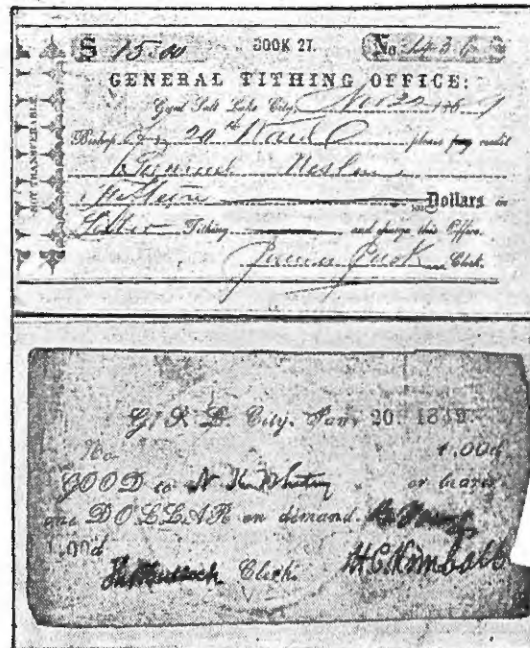 $ 15.00 BOOK 27. No.
GENERAL TITHING OFFICE:
Great Salt Lake City, Nov 22 186
Bishop 20th Ward please pay credit
Fifteen Dollars in
Tithing and charge this Office.
James Jack Clerk.
NOT TRANSFERABLE
G. S. L. City, Jan. 20. 1849.
No. 1.00d
GOOD to N. K. Whitney or bearer
one DOLLAR on demand. B. Young
1.00d H C Kimball
Clerk.